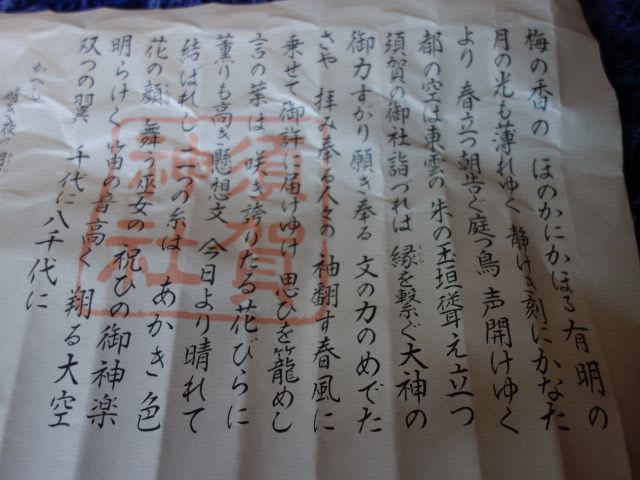 梅の香の ほのかにかほる有明の
月の光も薄れゆく 静けき刻にかなた
より 春立つ朝告ぐ庭つ鳥 声開けゆく
都の空は東雲の 朱の玉垣聳え立つ
須賀の御社詣づれは 縁を繋ぐ大神の
御力すかり願き奉る 文の力のめでた
さや 拝み奉る人々の 袖翻す春風に
乗せて御許に届けゆけ 思ひを籠めし
言の葉は 咲き誇りたる花びらに
薫りも高き懸想文 今日より晴れて
結ばれし 二つの糸は あかき色
花の顔 舞う巫女の 祝ひの御神楽
明らけく笛の音高く 翔る大空
双つの翼 千代に八千代に
かへし
須賀神社